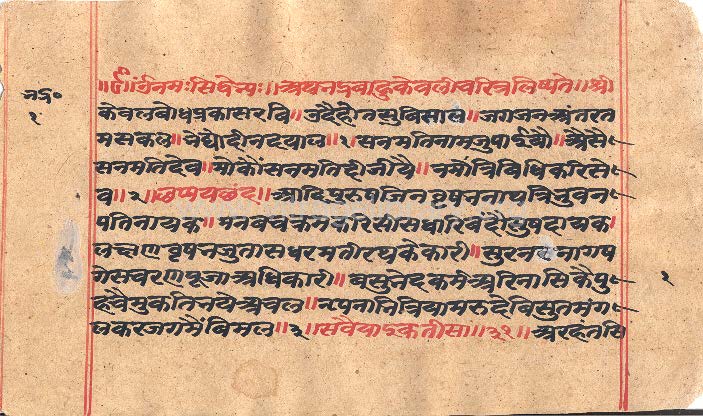 ॥ॐनमःसिद्धेभ्यः॥अथभद्रबाहुकेवलीचरित्रलिष्यते॥श्री
केवलबोधप्रकासरवि॥उदैहोतसुविसाल॥जगजनअंतरत
मसकल॥छेद्योदीनदयाल॥१॥सनमतिनामजुपाईयौ॥अैसै
सनमतिदेव॥मोकौंसनमतिदीजीयै॥नमौंत्रिविधिकरिसे
व॥२॥छप्पयछंद॥आदिपुरुषजिनवृषभनाथत्रिभुवन
पतिनायक॥मनवचतनकरिसीसधारिवंदौसुषदायक॥
लछणवृषभजुतासधरमतीरथकेकारी॥सुरनरनागष
गेसचरणपूजाअधिकारी॥वसुभेदकर्मअरिनासिकैपु
हचैमुकतिनयेअचल॥नृपनाभित्रियामरुदेविसुतमंग
लकरजगमैंविमल॥३॥सवैयाइकतीसा॥३१॥अरहंतसि
१
२